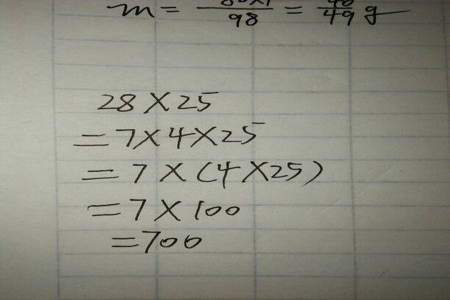 m = /98 = /49 g
28×25
=7×4×25
=7×(4×25)
=7×100
=700